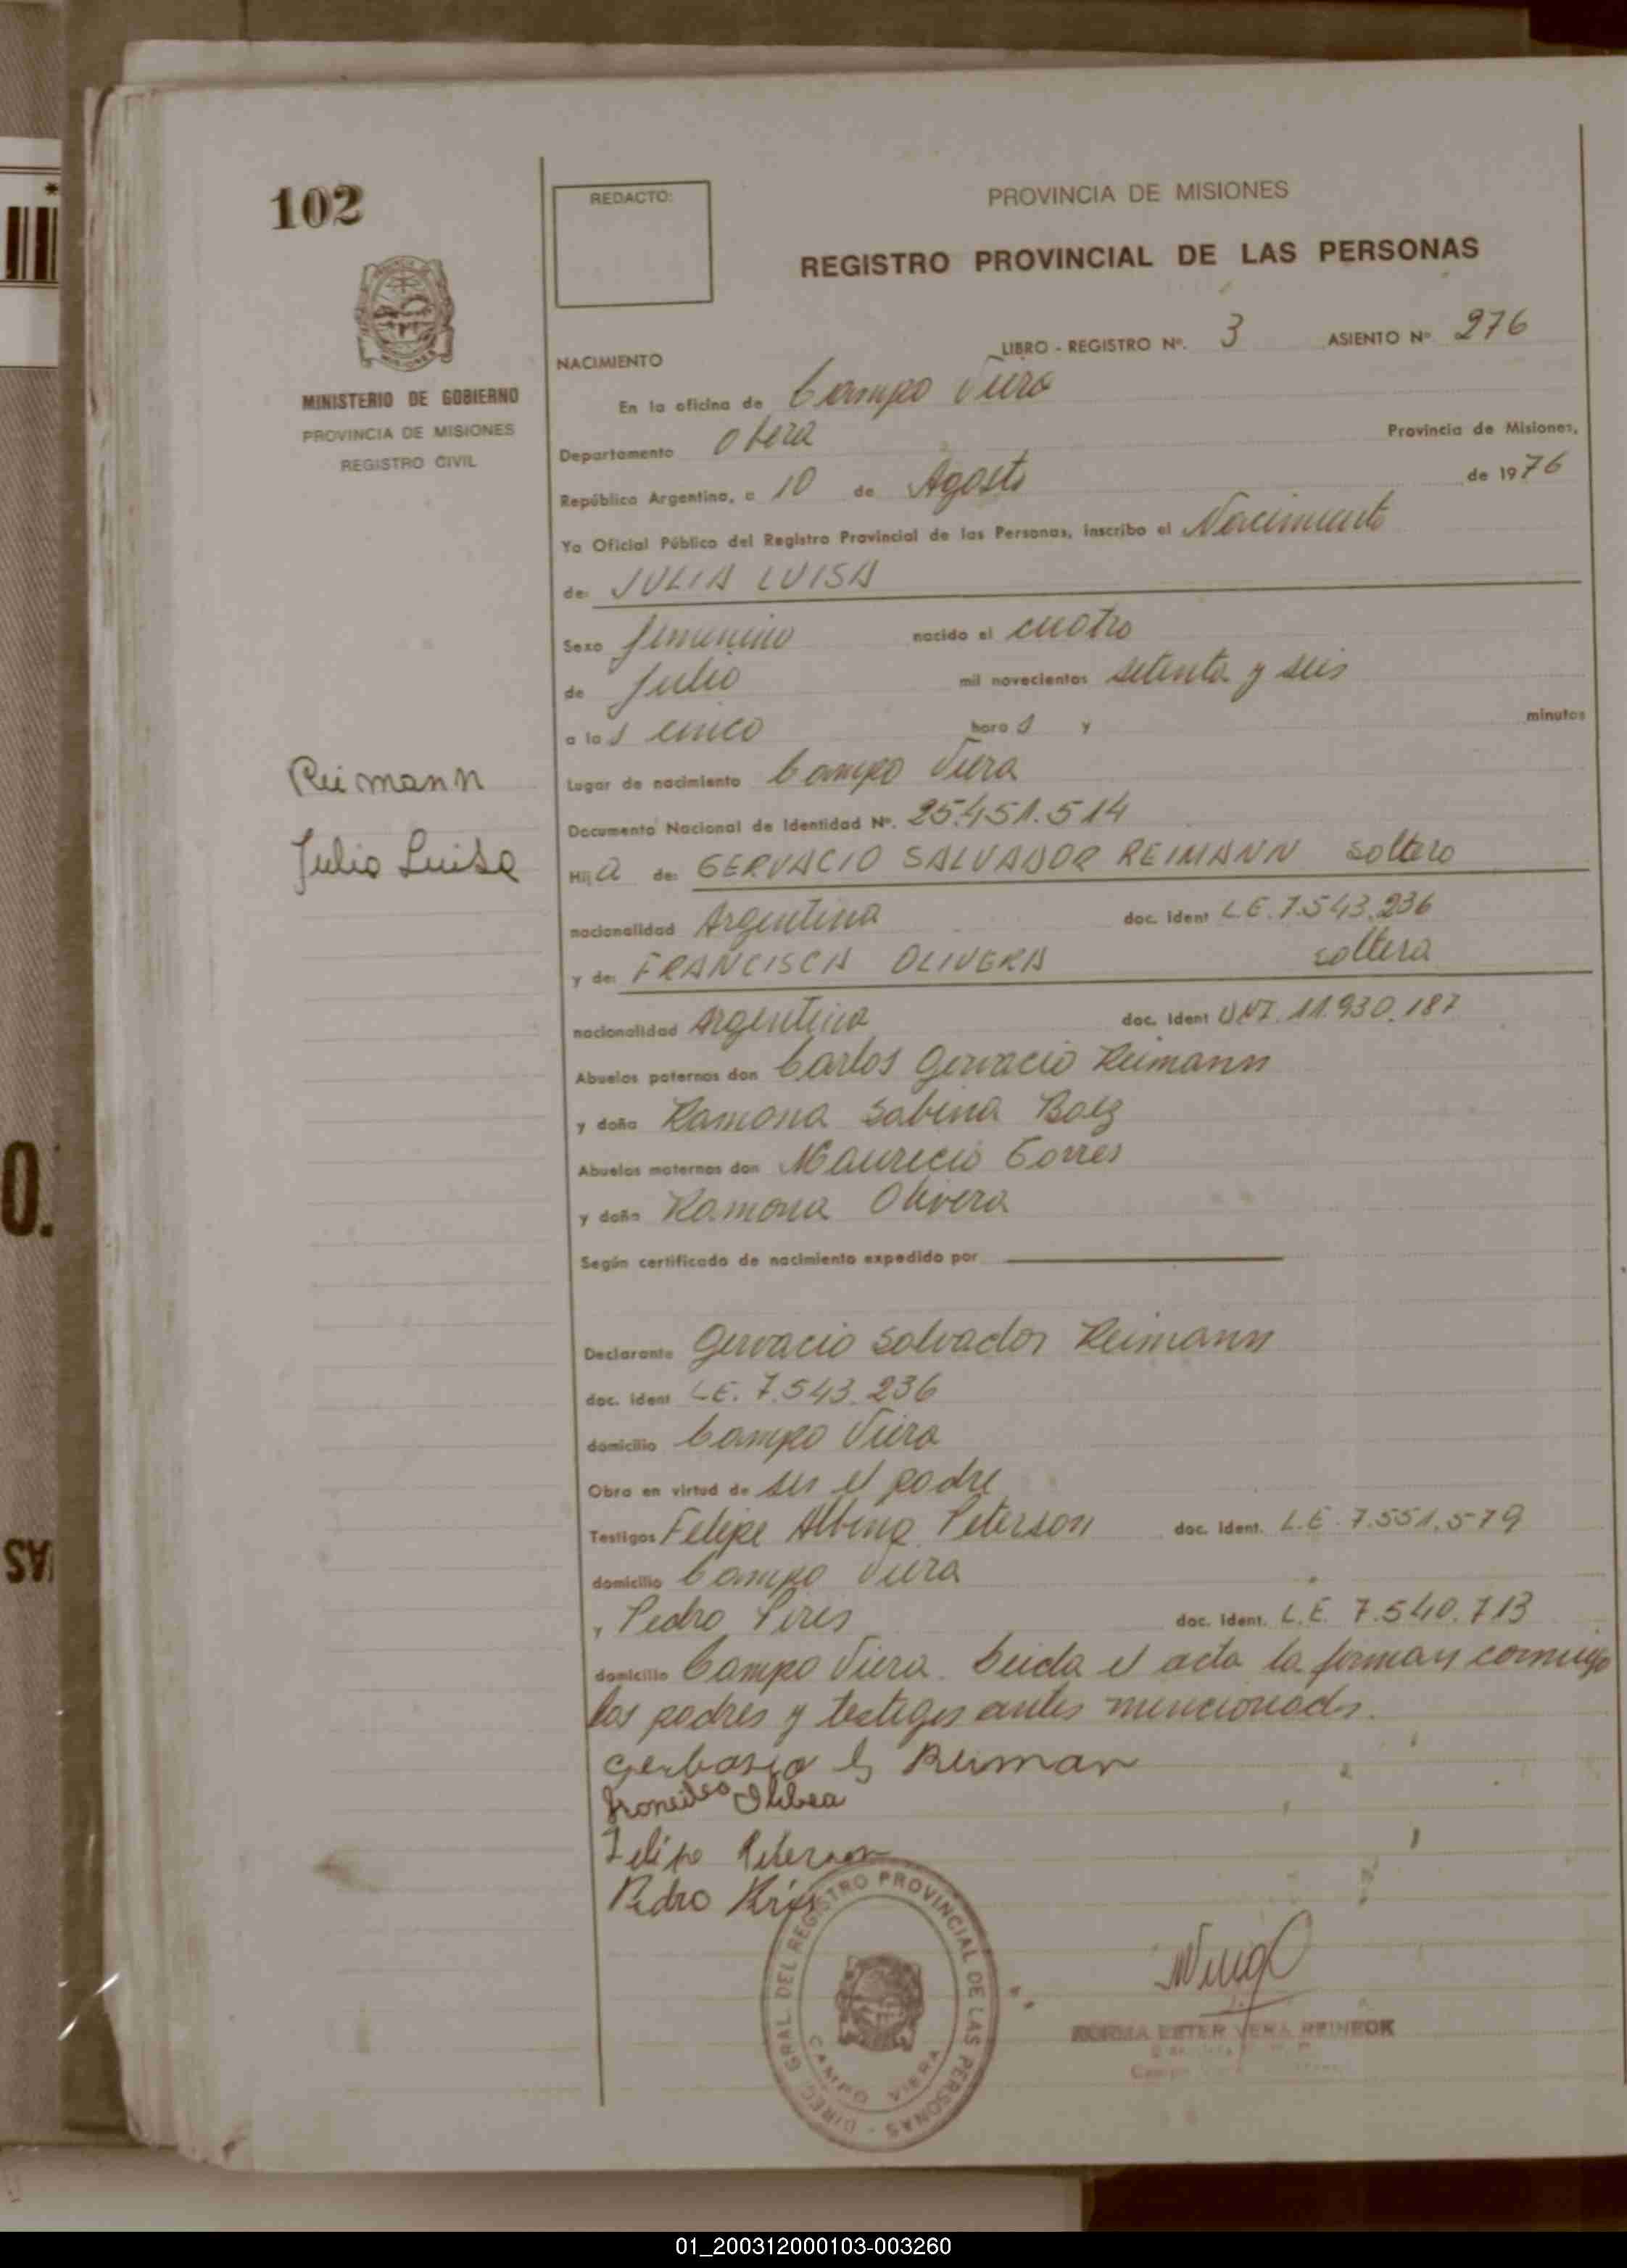 102
REDACTO:
PROVINCIA DE MISIONES
REGISTRO PROVINCIAL DE LAS PERSONAS
MINISTERIO DE GOBIERNO
PROVINCIA DE MISIONES
REGISTRO CIVIL
LIBRO - REGISTRO Nº. 3 ASIENTO Nº 276
NACIMIENTO
En la oficina de Campo Viera
Departamento Oberá Provincia de Misiones,
República Argentina, a 10 de Agosto de 1976
Yo Oficial Público del Registro Provincial de las Personas, inscribo el Nacimiento
de: JULIA LUISA
Sexo femenino nacido el cuatro
de Julio mil novecientos setenta y seis
a las cinco horas y minutos
Lugar de nacimiento Campo Viera
Reimann
Documento Nacional de Identidad Nº. 25.451.514
Julia Luisa
Hija de: GERVACIO SALVADOR REIMANN soltero
nacionalidad Argentina doc. ident L.E. 7.543.236
y de: FRANCISCA OLIVERA soltera
nacionalidad Argentina doc. ident 11.930.187
Abuelos paternos don Carlos Gervacio Reimann
y doña Ramona Sabina Baez
Abuelos maternos don Mauricio Torres
y doña Ramona Olivera
Según certificado de nacimiento expedido por
Declarante Gervacio Salvador Reimann
doc. ident L.E. 7.543.236
domicilio Campo Viera
Obra en virtud de ser el padre
Testigos Felipe Albino Peterson doc. ident. L.E. 7.551.579
domicilio Campo Viera
y Pedro Pires doc. ident. L.E. 7.540.713
domicilio Campo Viera. Leida el acta la forman conmigo
los padres y testigos antes mencionados.
Gerbasio Reiman
Felipe Peterson
Pedro
DIREC. GRAL. DEL REGISTRO PROVINCIAL DE LAS PERSONAS -
CAMPO VIERA
NORMA ESTER VERA REINECK
Campo
O.
AS
01_200312000103-003260